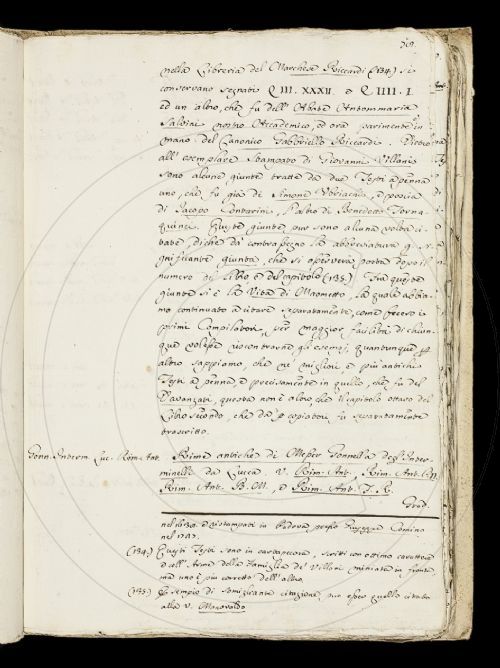 nella Libreria del Marchese Riccardi (134.) si
conservano segnati Q III. XXXII. e Q IIII. I.
ed un altro, che fu dell'Abate Antommaria
Salvini nostro Accademico, ed ora parimente in
mano del Canonico Gabbriello Riccardi. Dietro
all'esemplare stampato di Giovanni Villani
sono alcune giunte tratte da due Testi a penna
uno, che fu già di Simone , e poscia
di Jacopo Contarini, l'altro di Benedetto Torna-
quinci. Queste giunte pur sono alcuna volta ci-
tate, di che dà contrassegno la abbreviatura g. r.
significante giunta, che si osserverà posta dopo il
numero del libro e del capitolo (135.) Tra queste
giunte si è la Vita di Maometto la quale abbia-
mo continuato a citare separatamente, come fecero i
primi Compilatori, per maggior facilità di chiun-
que volesse riscontrarne gli esempj, quantunque per
altro sappiamo, che ne' migliori e più antichi
Testi a penna, e precisamente in quello, che fu del
Davanzati, questa non è altro, che il capitolo ottavo del
Libro Secondo, che da' copiatori fu separatamente
trascritto.
Gonn. Interm. Luc. Rim. Ant. Rime antiche di Messer Gonnella degl'Inter-
minelli da Lucca V. Rim. Ant. Rim. Ant.
Rim. Ant. B. M., e Rim. Ant. F. R.
Grad.
ristampati in Padova presso Giuseppe Comino
nel 1747.
(134.) Questi Testi sono in cartapecora, scritti con ottimo carattere
e coll'Arme della Famiglia de' Villani miniata in fronte
ma uno è più corretto dell'altro.
(135.) Esempio di somigliante citazione, può esser quello citato
alla V. Manovaldo